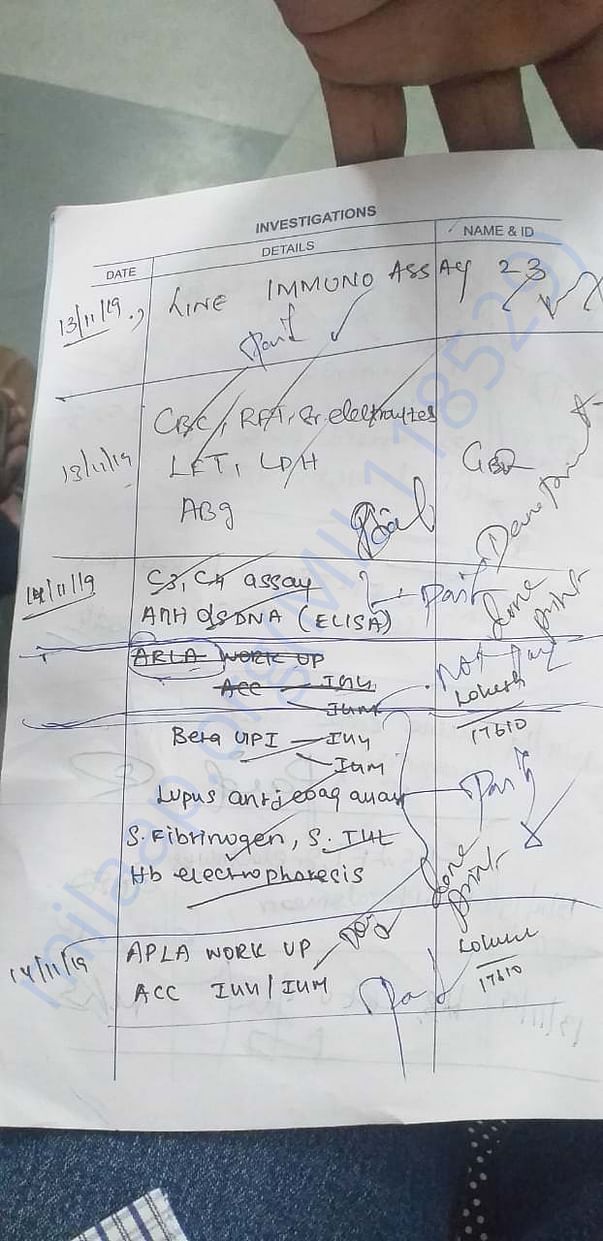 INVESTIGATIONS
DATE DETAILS NAME & ID
13/11/19 LINE IMMUNO ASSAY 23
Paid
13/11/19 CBC, RFT, Sr. electrolytes
LFT, LDH
ABg
Paid
Done print
14/11/19 C3, C4 assay
Paid
ANA dsDNA (ELISA)
done print
APLA WORK UP
ACC IgG
IgM
Not Paid
Lokesh
17610
Beta GPI IgG
IgM
Lupus anti coag assay
Paid
S. Fibrinogen, S.
Hb electrophoresis
done print
14/11/19 APLA WORK UP
ACC IgG/IgM
Paid
Lokesh
17610
milaap.org(MIL1118529)